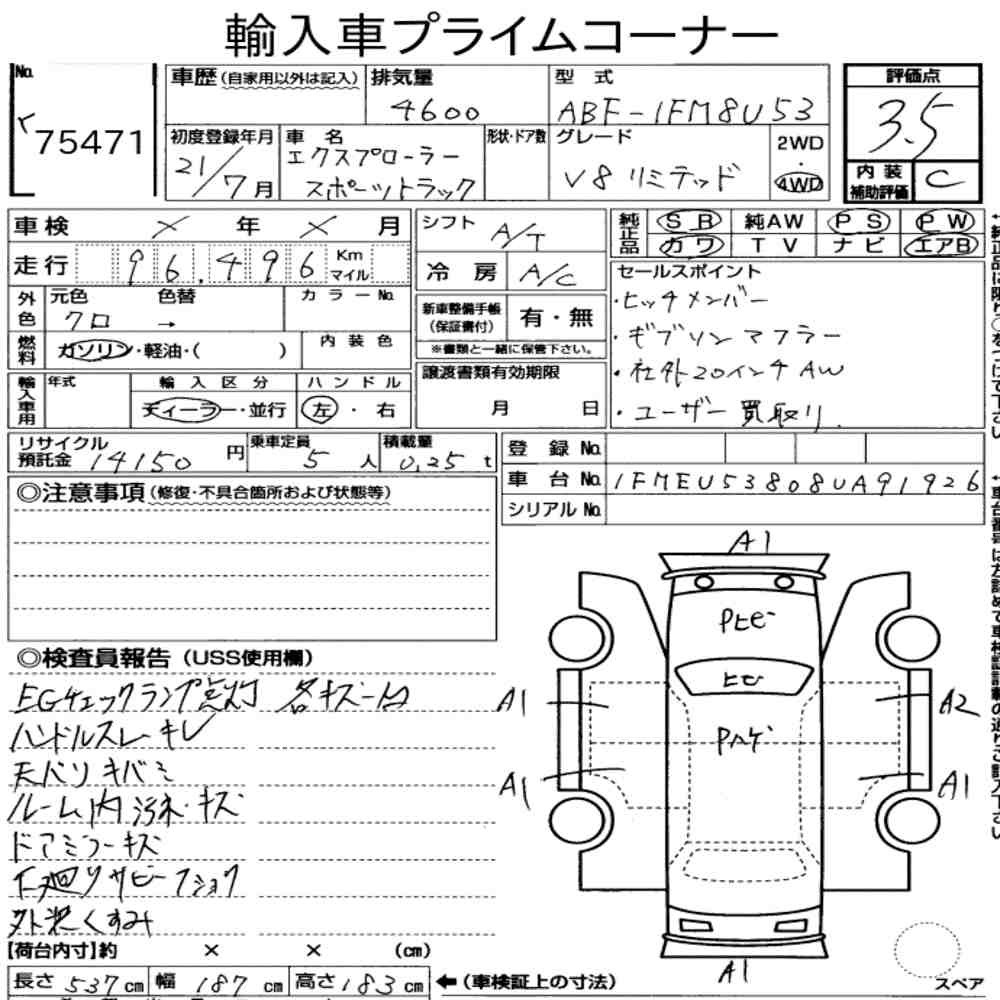 輸入車プライムコーナー
No. 75471
車歴(自家用以外は記入)
排気量 4600
型式 ABF-1FM8U53
評価点 3.5
初度登録年月 21/7月
車名 エクスプローラー スポーツトラック
形状・ドア数
グレード V8 リミテッド
2WD・4WD
内装補助評価 C
車検 × 年 × 月
シフト A/T
純正品 SR 純AW PS PW
カワ TV ナビ エアB
走行 96,496 Km マイル
冷房 A/C
セールスポイント
・ヒッチメンバー
・ギブソンマフラー
・社外20インチAW
・ユーザー買取り
外色 元色 クロ → 色替 カラーNo.
新車整備手帳(保証書付) 有・無
※書類と一緒に保管下さい。
燃料 ガソリン・軽油・( ) 内装色
譲渡書類有効期限 月 日
輸入車用 年式 輸入区分 ハンドル
ディーラー・並行 左・右
リサイクル預託金 14150円
乗車定員 5人
積載量 0,25t
登録No.
車台No. 1FMEU53808UA91926
シリアルNo.
◎注意事項(修復・不具合箇所および状態等)
◎検査員報告(USS使用欄)
EGチェックランプ点灯 各キズ一凹
ハンドルスレ・キレ
天バリキバミ
ルーム内汚れ・キズ
ドアミラーキズ
下廻りサビーフショク
外装くすみ
A1
Pヒビー
ヒビ
A1
A2
Pハゲ
A1
A1
A1
スペア
【荷台内寸】約 × × (cm)
長さ 537cm 幅 187cm 高さ 183cm ←(車検証上の寸法)